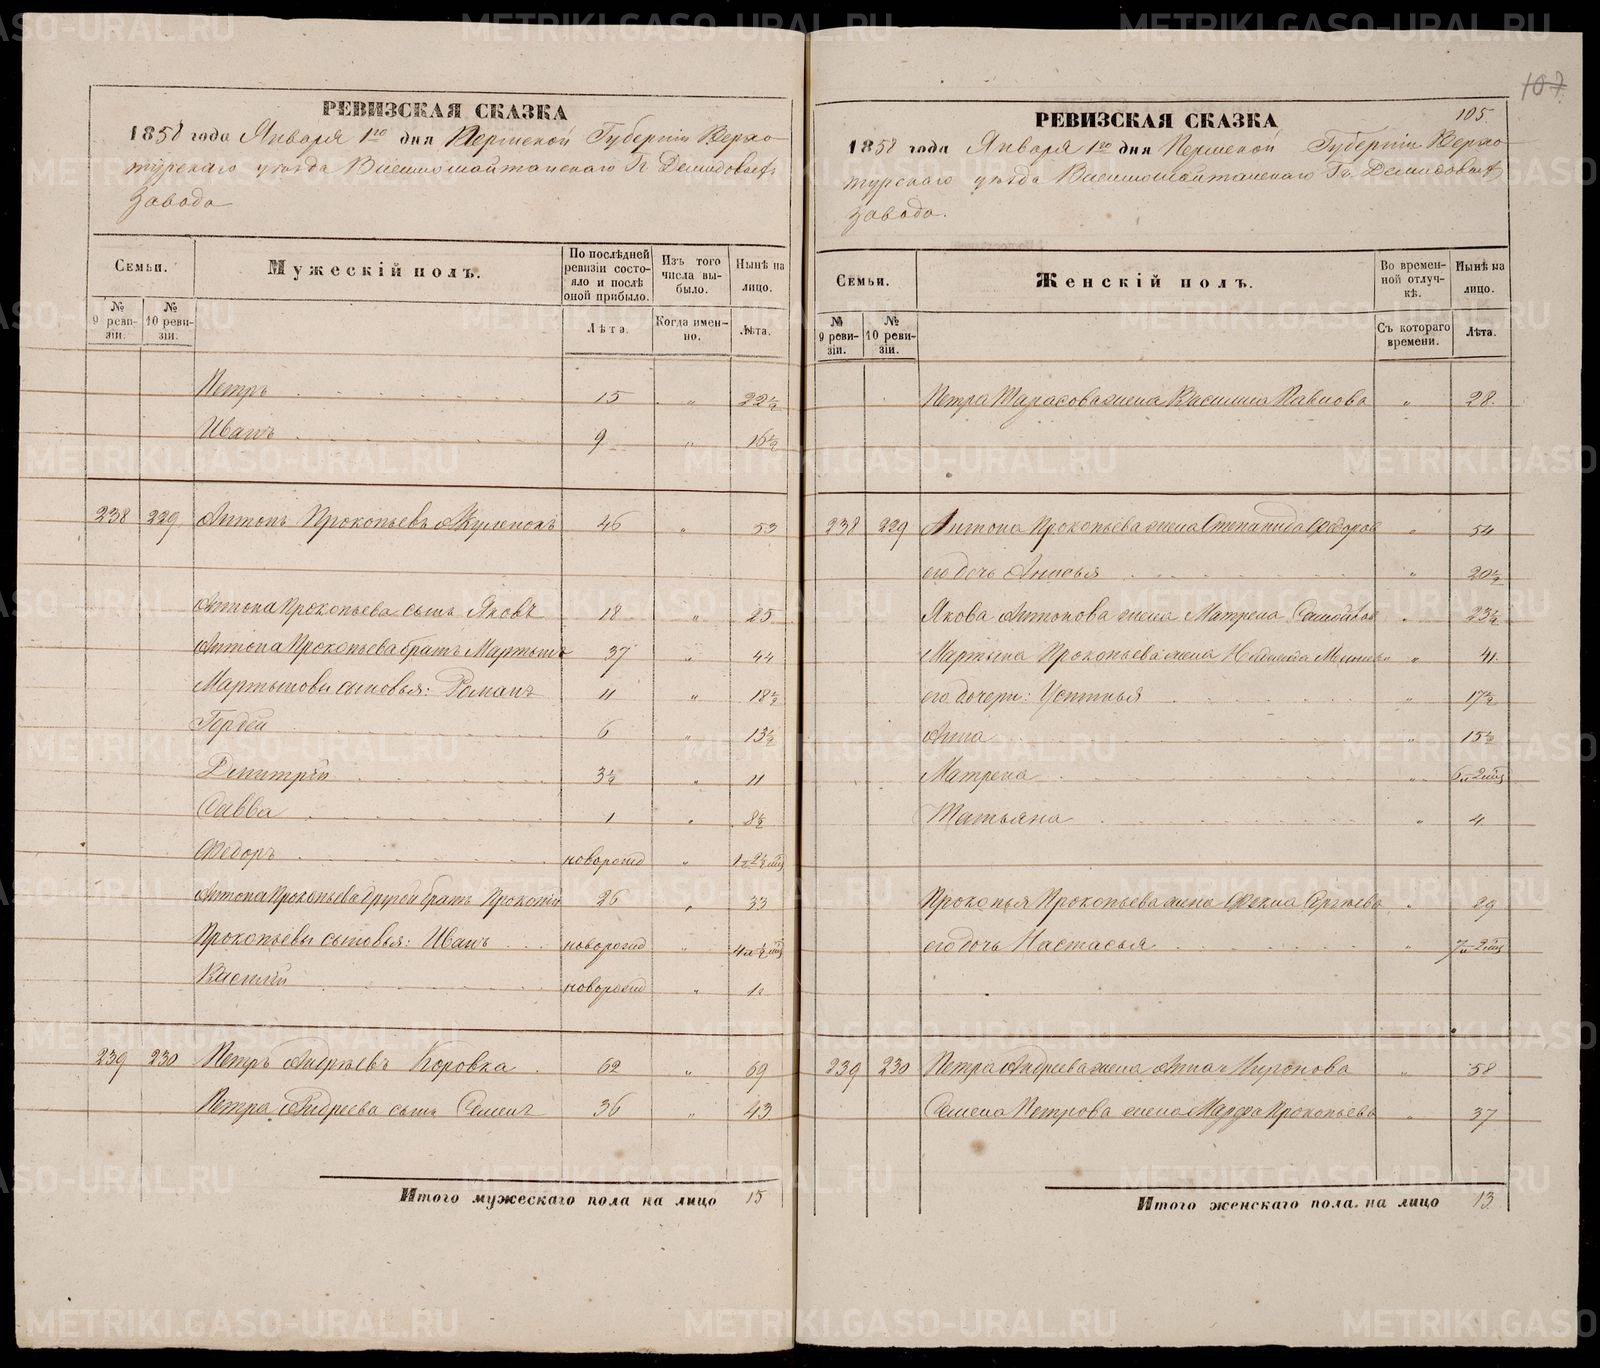 107
РЕВИЗСКАЯ СКАЗКА
1858 года Января 1го дня Пермской Губернiи Верхо
турскаго уѣзда Висимошайтанскаго Гг. Демидовыхъ
завода
Семьи.
Мужескiй полъ.
По послѣдней ревизiи состояло и послѣ оной прибыло.
Изъ того числа выбыло.
Нынѣ на лицо.
№ 9 ревизiи.
№ 10 ревизiи.
Лѣта.
Когда именно.
Лѣта.
Петръ 15 " 22½
Иванъ 9 " 16½
238 229 Антонъ Прокопьевъ 46 " 53
Антона Прокопьева сынъ Яковъ 18 " 25
Антона Прокопьева братъ Мартынъ 37 " 44
Мартыновы сыновья: Романъ 11 " 18½
Гордей 6 " 13½
Дмитрiй 3½ " 11
Савва 1 " 8½
Ѳедоръ новорожд " 1 2½ мѣц
Антона Прокопьева другой братъ Прокопiй 26 " 33
Прокопьевы сыновья: Иванъ новорожд " 4 ½ мѣц
Василiй новорожд " 1
239 230 Петръ Андреевъ Коровка 62 " 69
Петра Андреева сынъ Семенъ 36 " 43
Итого мужескаго пола на лицо 15
РЕВИЗСКАЯ СКАЗКА
105.
1858 года Января 1го дня Пермской Губернiи Верхо
турскаго уѣзда Висимошайтанскаго Гг. Демидовыхъ
завода.
Семьи.
Женскiй полъ.
Во временной отлучкѣ.
Нынѣ на лицо.
№ 9 ревизiи.
№ 10 ревизiи.
Съ котораго времени.
Лѣта.
Петра Тарасова жена Василиса Павлова " 28.
238 229 Антона Прокопьева жена Степанида Ѳедорова " 54
его дочь Анисья " 20½
Якова Антонова жена Матрена " 23½
Мартына Прокопьева жена Надежда " 41
его дочери: Устинья " 17½
Анна " 15½
Матрена " 6 л 2 мѣц
Татьяна " 4
Прокопья Прокопьева жена Ѳекла Сергѣева " 29
его дочь Настасья " 7 л 2 мѣц
239 230 Петра Андреева жена Анна Миронова " 58
Семена Петрова жена Марфа Прокопьева " 37
Итого женскаго пола на лицо 13
METRIKI.GASO-URAL.RU